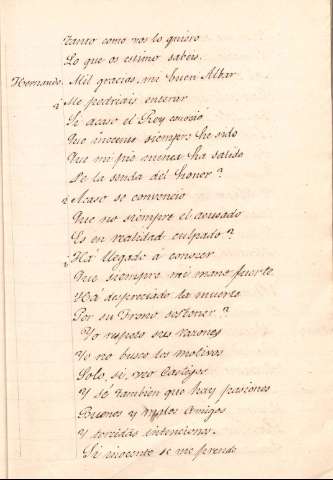 Tanto como vos lo quiero
Lo que os estimo sabeis.
Hernando. Mil gracias, mi buen Altar
¿ Me podriais enterar
Si acaso el Rey conoció
Que inocente siempre he sido
Que mi pie nunca ha salido
De la senda del honor?
¿ Acaso se convenció
Que no siempre el acusado
Es en realidad culpado?
¿ Ha llegado á conocer
Que siempre mi mano fuerte
Há despreciado la muerte
Por su Trono sostener?
Yo respeto sus razones
Yo no busco los motivos
Solo, si, veo Castigos
Y sé tambien que hay pasiones
Buenos y malos Amigos
Y torcidas intenciones.
Si inocente se me prende